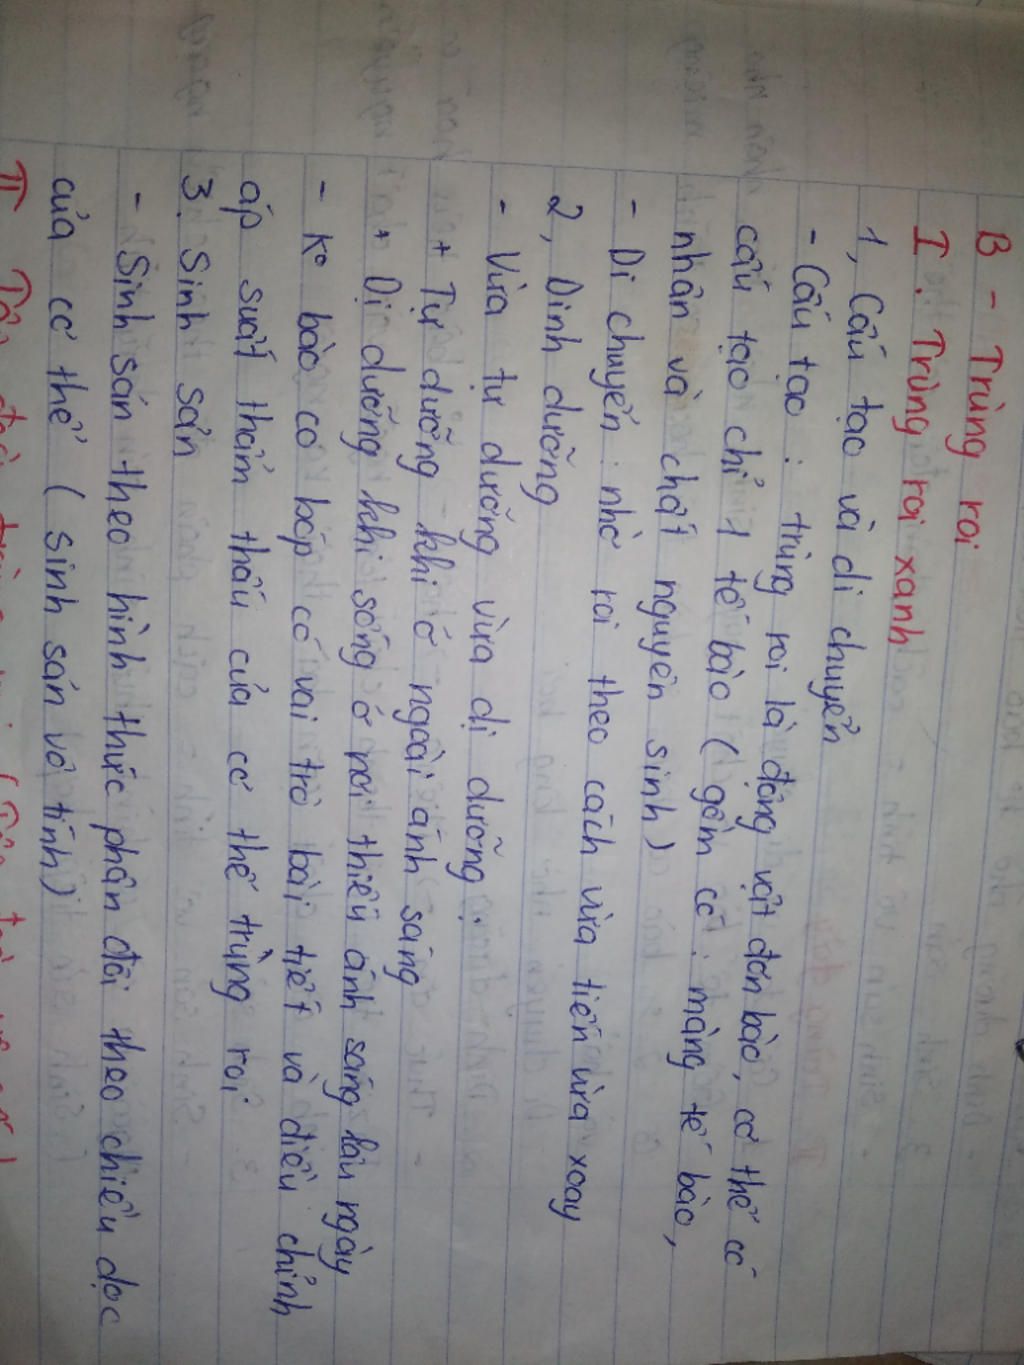 B - Trùng roi
I. Trùng roi xanh
1, Cấu tạo và di chuyển
- Cấu tạo : trùng roi là động vật đơn bào, cơ thể có
cấu tạo chỉ 1 tế bào ( gồm có : màng tế bào,
nhân và chất nguyên sinh)
- Di chuyển : nhờ roi theo cách vừa tiến vừa xoay
2, Dinh dưỡng
- Vừa tự dưỡng vừa dị dưỡng.
+ Tự dưỡng khi ở ngoài ánh sáng
+ Dị dưỡng khi sống ở nơi thiếu ánh sáng lâu ngày
- Ko bào co bóp có vai trò bài tiết và điều chỉnh
áp suất thẩm thấu của cơ thể trùng roi
3. Sinh sản
- Sinh sản theo hình thức phân đôi theo chiều dọc
của cơ thể ( sinh sản vô tính)
II